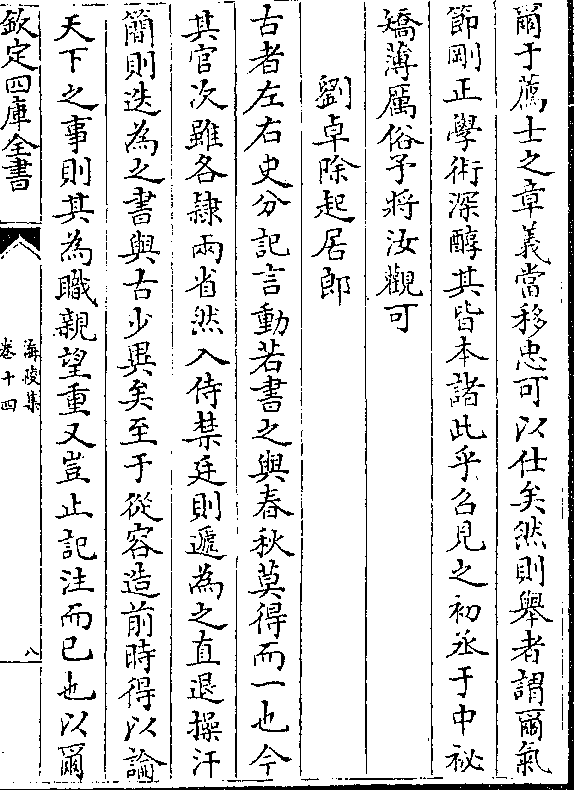 爾于薦士之章義當移忠可以仕矣然則舉者謂爾氣
節剛正學術深醇其皆本諸此乎召見之初丞于中祕
矯薄厲俗予將汝觀可
劉卓除起居郎
古者左右史分記言動若書之與春秋莫得而一也今
其官次雖各隷兩省然入侍禁廷則遞為之直退操汗
簡則迭為之書與古少異矣至于從容造前時得以論
天下之事則其為職親望重又豈止記注而已也以爾
欽定四庫全書
海陵集
卷十四
八